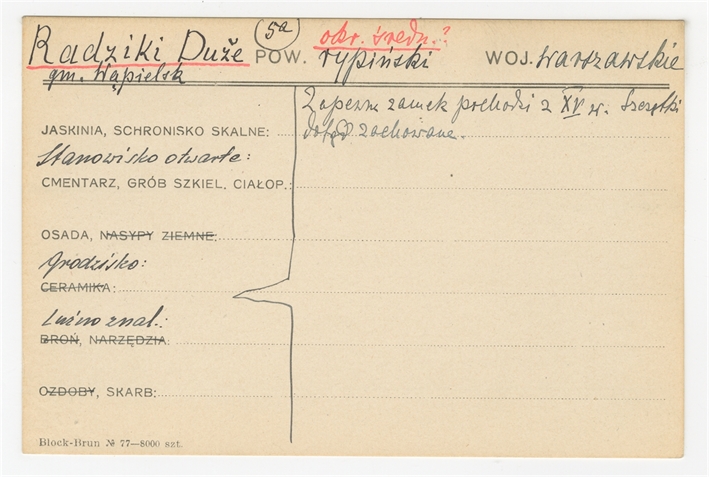 Radziki Duże (5a) POW. rypiński WOJ. warszawskie
okr. średn.?
gm. Wąpielsk
Zapewne zamek pochodzi z XV w. Szczątki
dotąd zachowane.
JASKINIA, SCHRONISKO SKALNE:
Stanowisko otwarte:
CMENTARZ, GRÓB SZKIEL. CIAŁOP.:
OSADA, NASYPY ZIEMNE:
Grodzisko:
CERAMIKA:
Luźno znal.:
BROŃ, NARZĘDZIA:
OZDOBY, SKARB:
Block-Brun № 77—8000 szt.